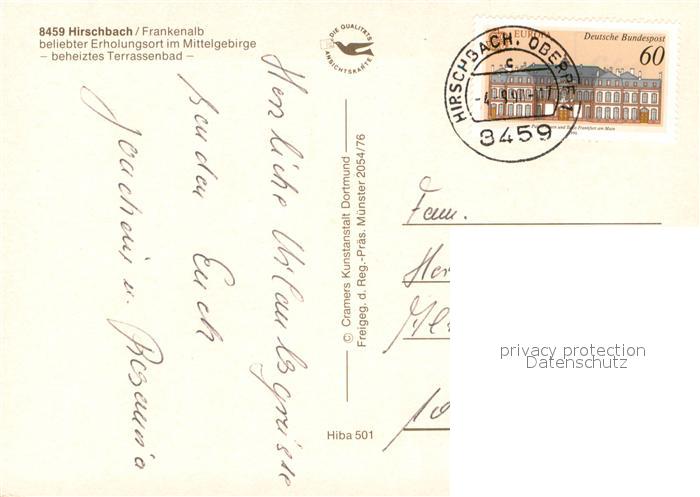 8459 Hirschbach / Frankenalb
beliebter Erholungsort im Mittelgebirge
– beheiztes Terrassenbad –
DIE QUALITÄTS
ANSICHTSKARTE
Herzliche Urlaubsgrüsse
senden Euch
Joachim u. Rosaria
© Cramers Kunstanstalt Dortmund
Freigeg. d. Reg.-Präs. Münster 2054/76
Hiba 501
EUROPA
Deutsche Bundespost
60
HIRSCHBACH, OBERPF
c
8459
Fam.
privacy protection
Datenschutz